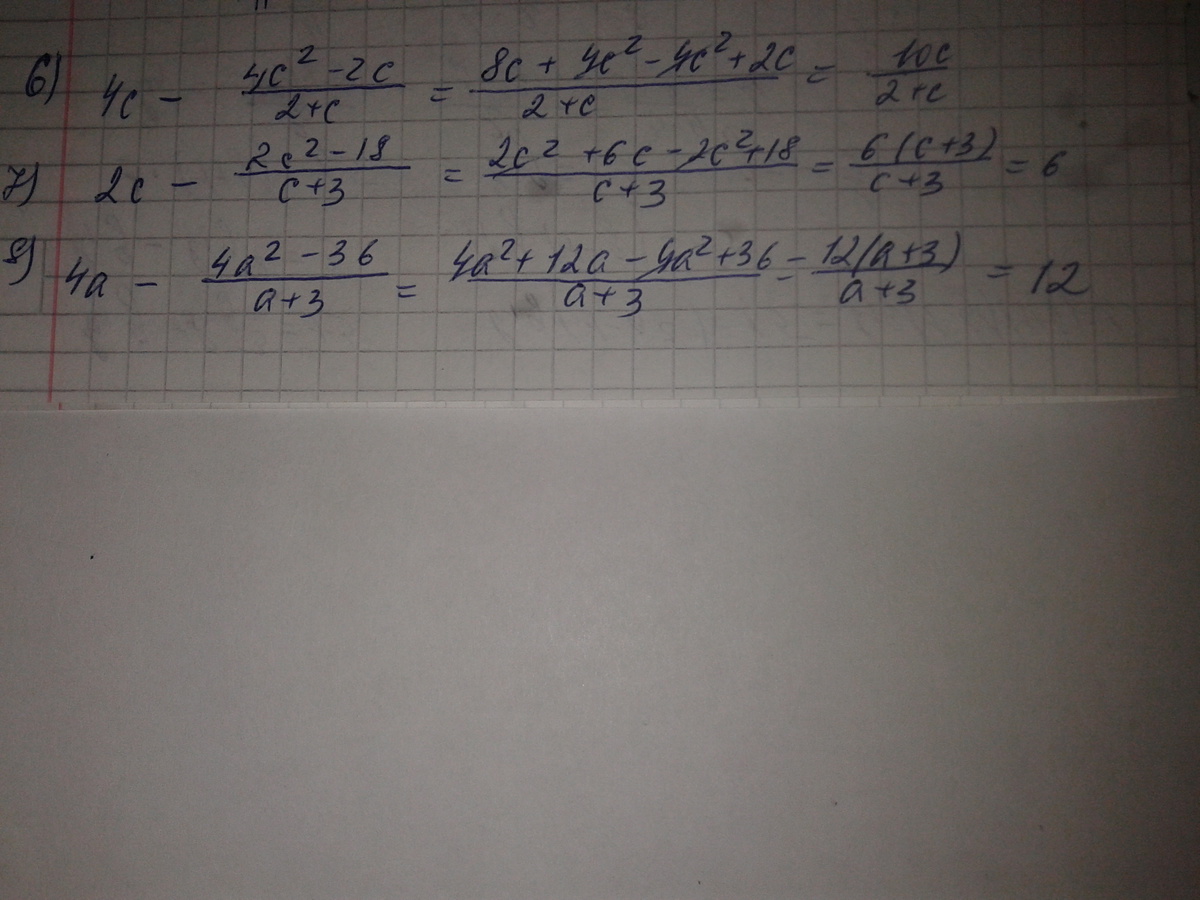 6) 4c - (4c² - 2c)/(2+c) = (8c + 4c² - 4c² + 2c)/(2+c) = 10c/(2+c)
7) 2c - (2c² - 18)/(c+3) = (2c² + 6c - 2c² + 18)/(c+3) = 6(c+3)/(c+3) = 6
8) 4a - (4a² - 36)/(a+3) = (4a² + 12a - 4a² + 36)/(a+3) = 12(a+3)/(a+3) = 12